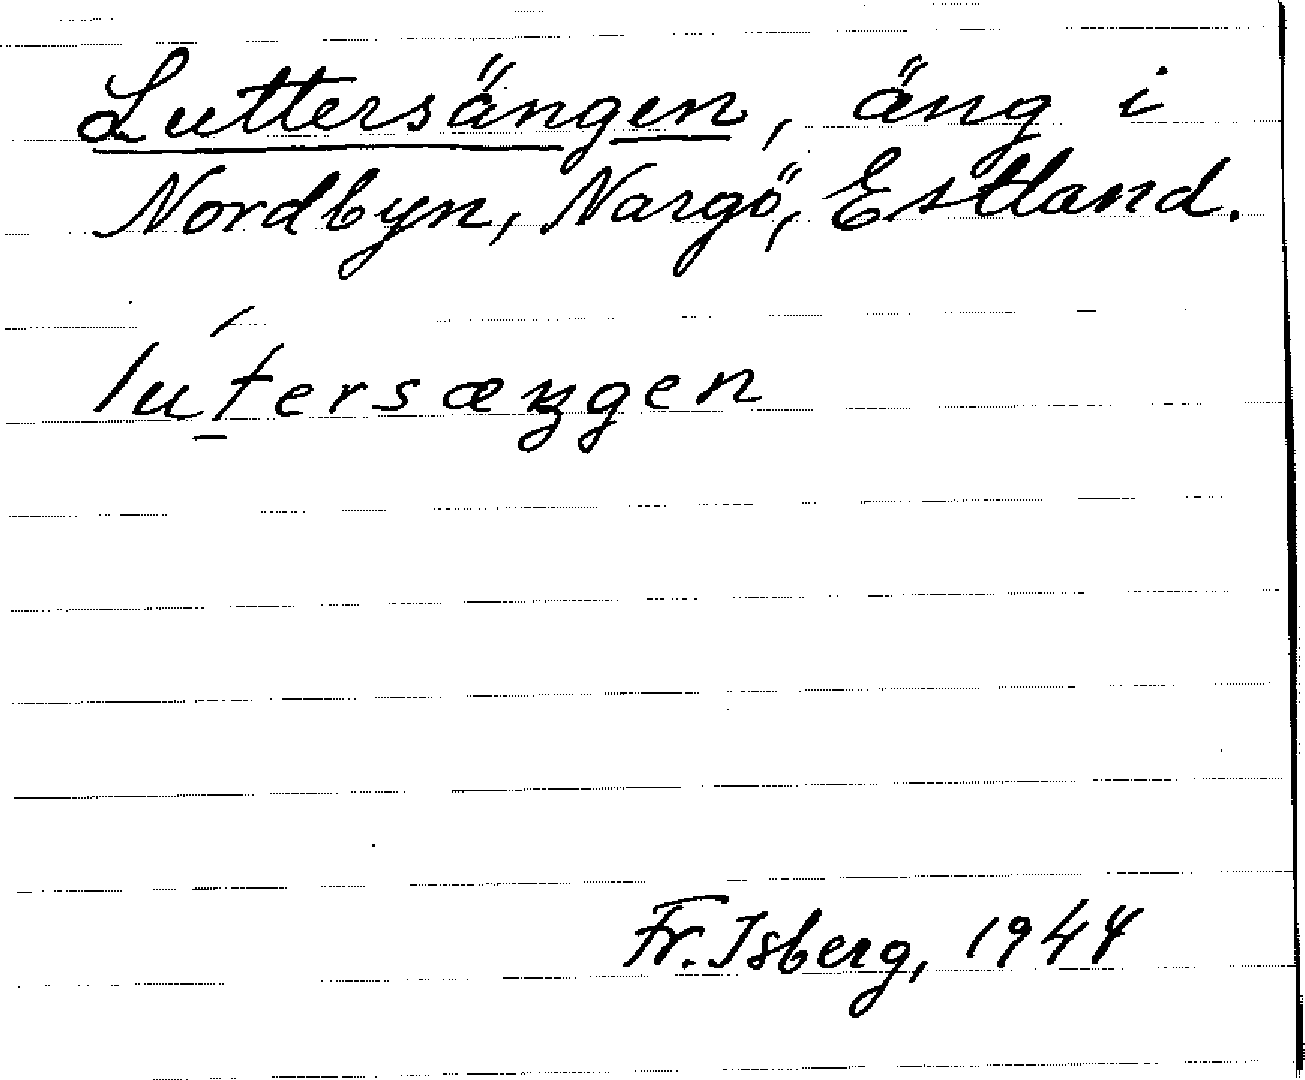 Luttersängen, äng i
Nordbyn, Nargö, Estland.
lu̱´tersæŋgen
Fr. Isberg, 1944